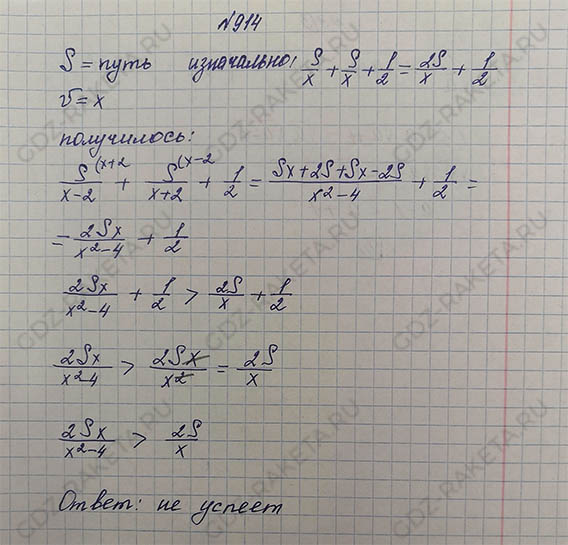 №914
S = путь изначально: S/x + S/x + 1/2 = 2S/x + 1/2
v = x
получилось:
S(x+2/x-2 + S(x-2/x+2 + 1/2 = Sx+2S+Sx-2S/x²-4 + 1/2 =
= 2Sx/x²-4 + 1/2
2Sx/x²-4 + 1/2 > 2S/x + 1/2
2Sx/x²-4 > 2Sx/x² = 2S/x
2Sx/x²-4 > 2S/x
Ответ: не успеет
GDZ-RAKETA.RU